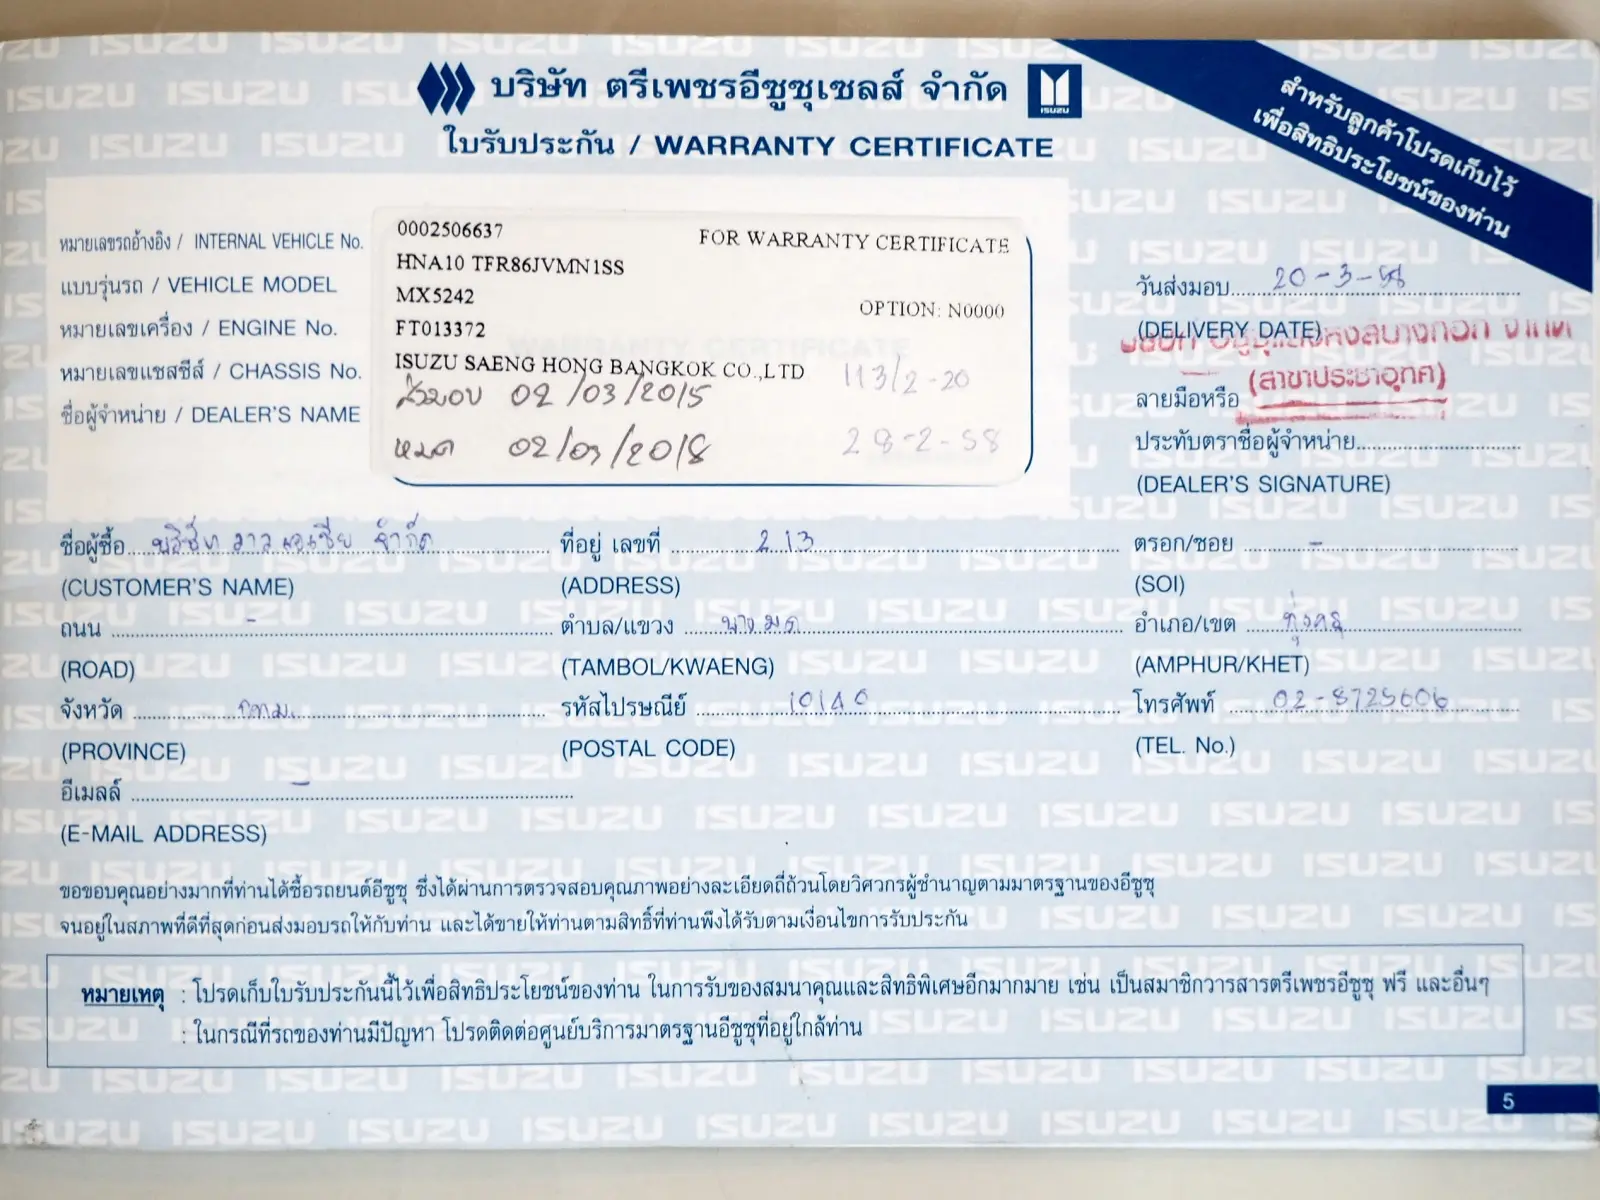 บริษัท ตรีเพชรอีซูซุเซลส์ จำกัด ISUZU
ใบรับประกัน / WARRANTY CERTIFICATE
สำหรับลูกค้าโปรดเก็บไว้
เพื่อสิทธิประโยชน์ของท่าน
หมายเลขรถอ้างอิง / INTERNAL VEHICLE No. 0002506637 FOR WARRANTY CERTIFICATE
แบบรุ่นรถ / VEHICLE MODEL HNA10 TFR86JVMN1SS
หมายเลขเครื่อง / ENGINE No. MX5242 OPTION: N0000
หมายเลขแชสซีส์ / CHASSIS No. FT013372
ชื่อผู้จำหน่าย / DEALER'S NAME ISUZU SAENG HONG BANGKOK CO.,LTD
113/2-20
ส่งมอบ 02/03/2015
หมด 02/03/2018
28-2-58
วันส่งมอบ 20-3-58
(DELIVERY DATE)
(สาขาประชาอุทิศ)
ลายมือหรือ
ประทับตราชื่อผู้จำหน่าย
(DEALER'S SIGNATURE)
ชื่อผู้ซื้อ บริษัท จำกัด ที่อยู่ เลขที่ 213 ตรอก/ซอย -
(CUSTOMER'S NAME) (ADDRESS) (SOI)
ถนน - ตำบล/แขวง บางมด อำเภอ/เขต ทุ่งครุ
(ROAD) (TAMBOL/KWAENG) (AMPHUR/KHET)
จังหวัด กทม. รหัสไปรษณีย์ 10140 โทรศัพท์ 02-8725606
(PROVINCE) (POSTAL CODE) (TEL. No.)
อีเมลล์ -
(E-MAIL ADDRESS)
ขอขอบคุณอย่างมากที่ท่านได้ซื้อรถยนต์อีซูซุ ซึ่งได้ผ่านการตรวจสอบคุณภาพอย่างละเอียดถี่ถ้วนโดยวิศวกรผู้ชำนาญตามมาตรฐานของอีซูซุ
จนอยู่ในสภาพที่ดีที่สุดก่อนส่งมอบรถให้กับท่าน และได้ขายให้ท่านตามสิทธิ์ที่ท่านพึงได้รับตามเงื่อนไขการรับประกัน
หมายเหตุ : โปรดเก็บใบรับประกันนี้ไว้เพื่อสิทธิประโยชน์ของท่าน ในการรับของสมนาคุณและสิทธิพิเศษอีกมากมาย เช่น เป็นสมาชิกวารสารตรีเพชรอีซูซุ ฟรี และอื่นๆ
: ในกรณีที่รถของท่านมีปัญหา โปรดติดต่อศูนย์บริการมาตรฐานอีซูซุที่อยู่ใกล้ท่าน
5